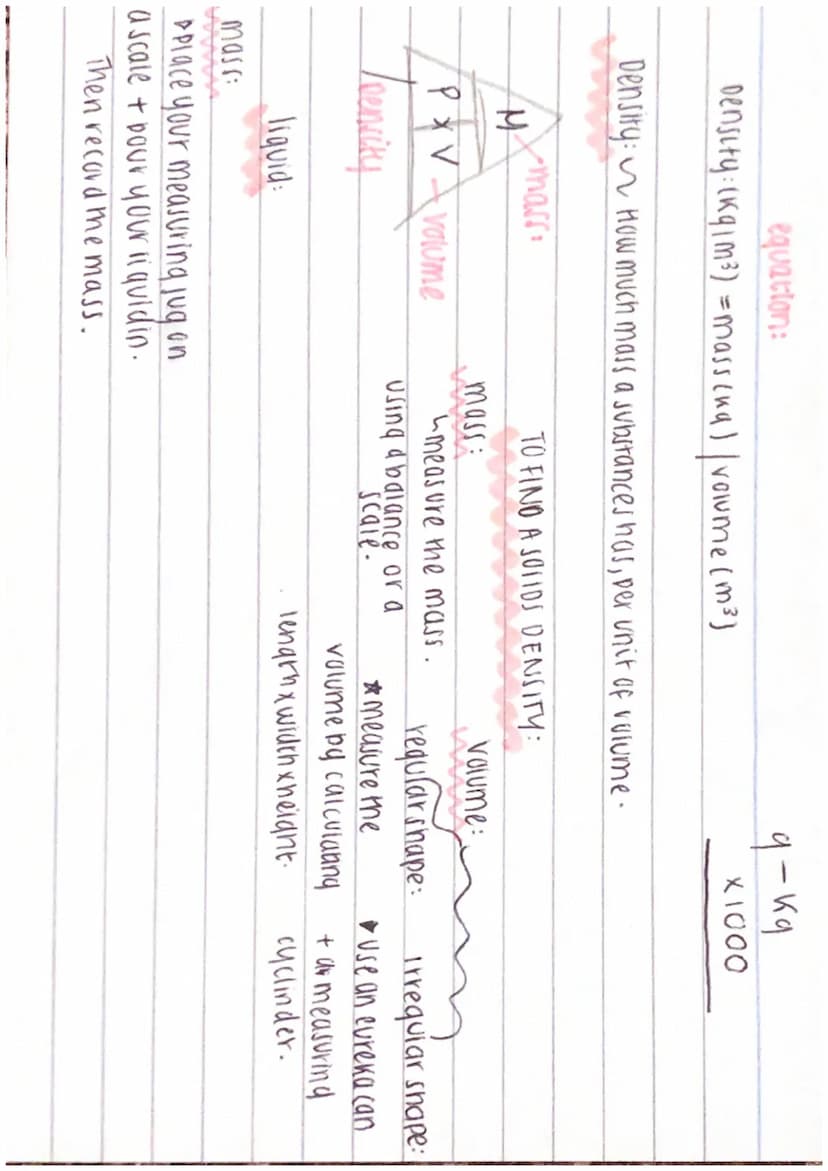 equation:
g - Kg
Density: (Kg/m³) = mass(Kg) / volume (m³)
x1000
Density: ~ How much mass a substances has, per unit of volume.
mass:
M
P x V
volume
Density
TO FIND A SOLIDS DENSITY:
mass:
↳ measure the mass.
using a balance or a
scale.
volume:
regular shape:
★ measure the
volume by calculating
length x width x height.
irregular shape:
▾ use an eureka can
+ a measuring
cyclinder.
liquid:
mass:
▹ place your measuring jug on
a scale + pour your liquid in.
Then record the mass.